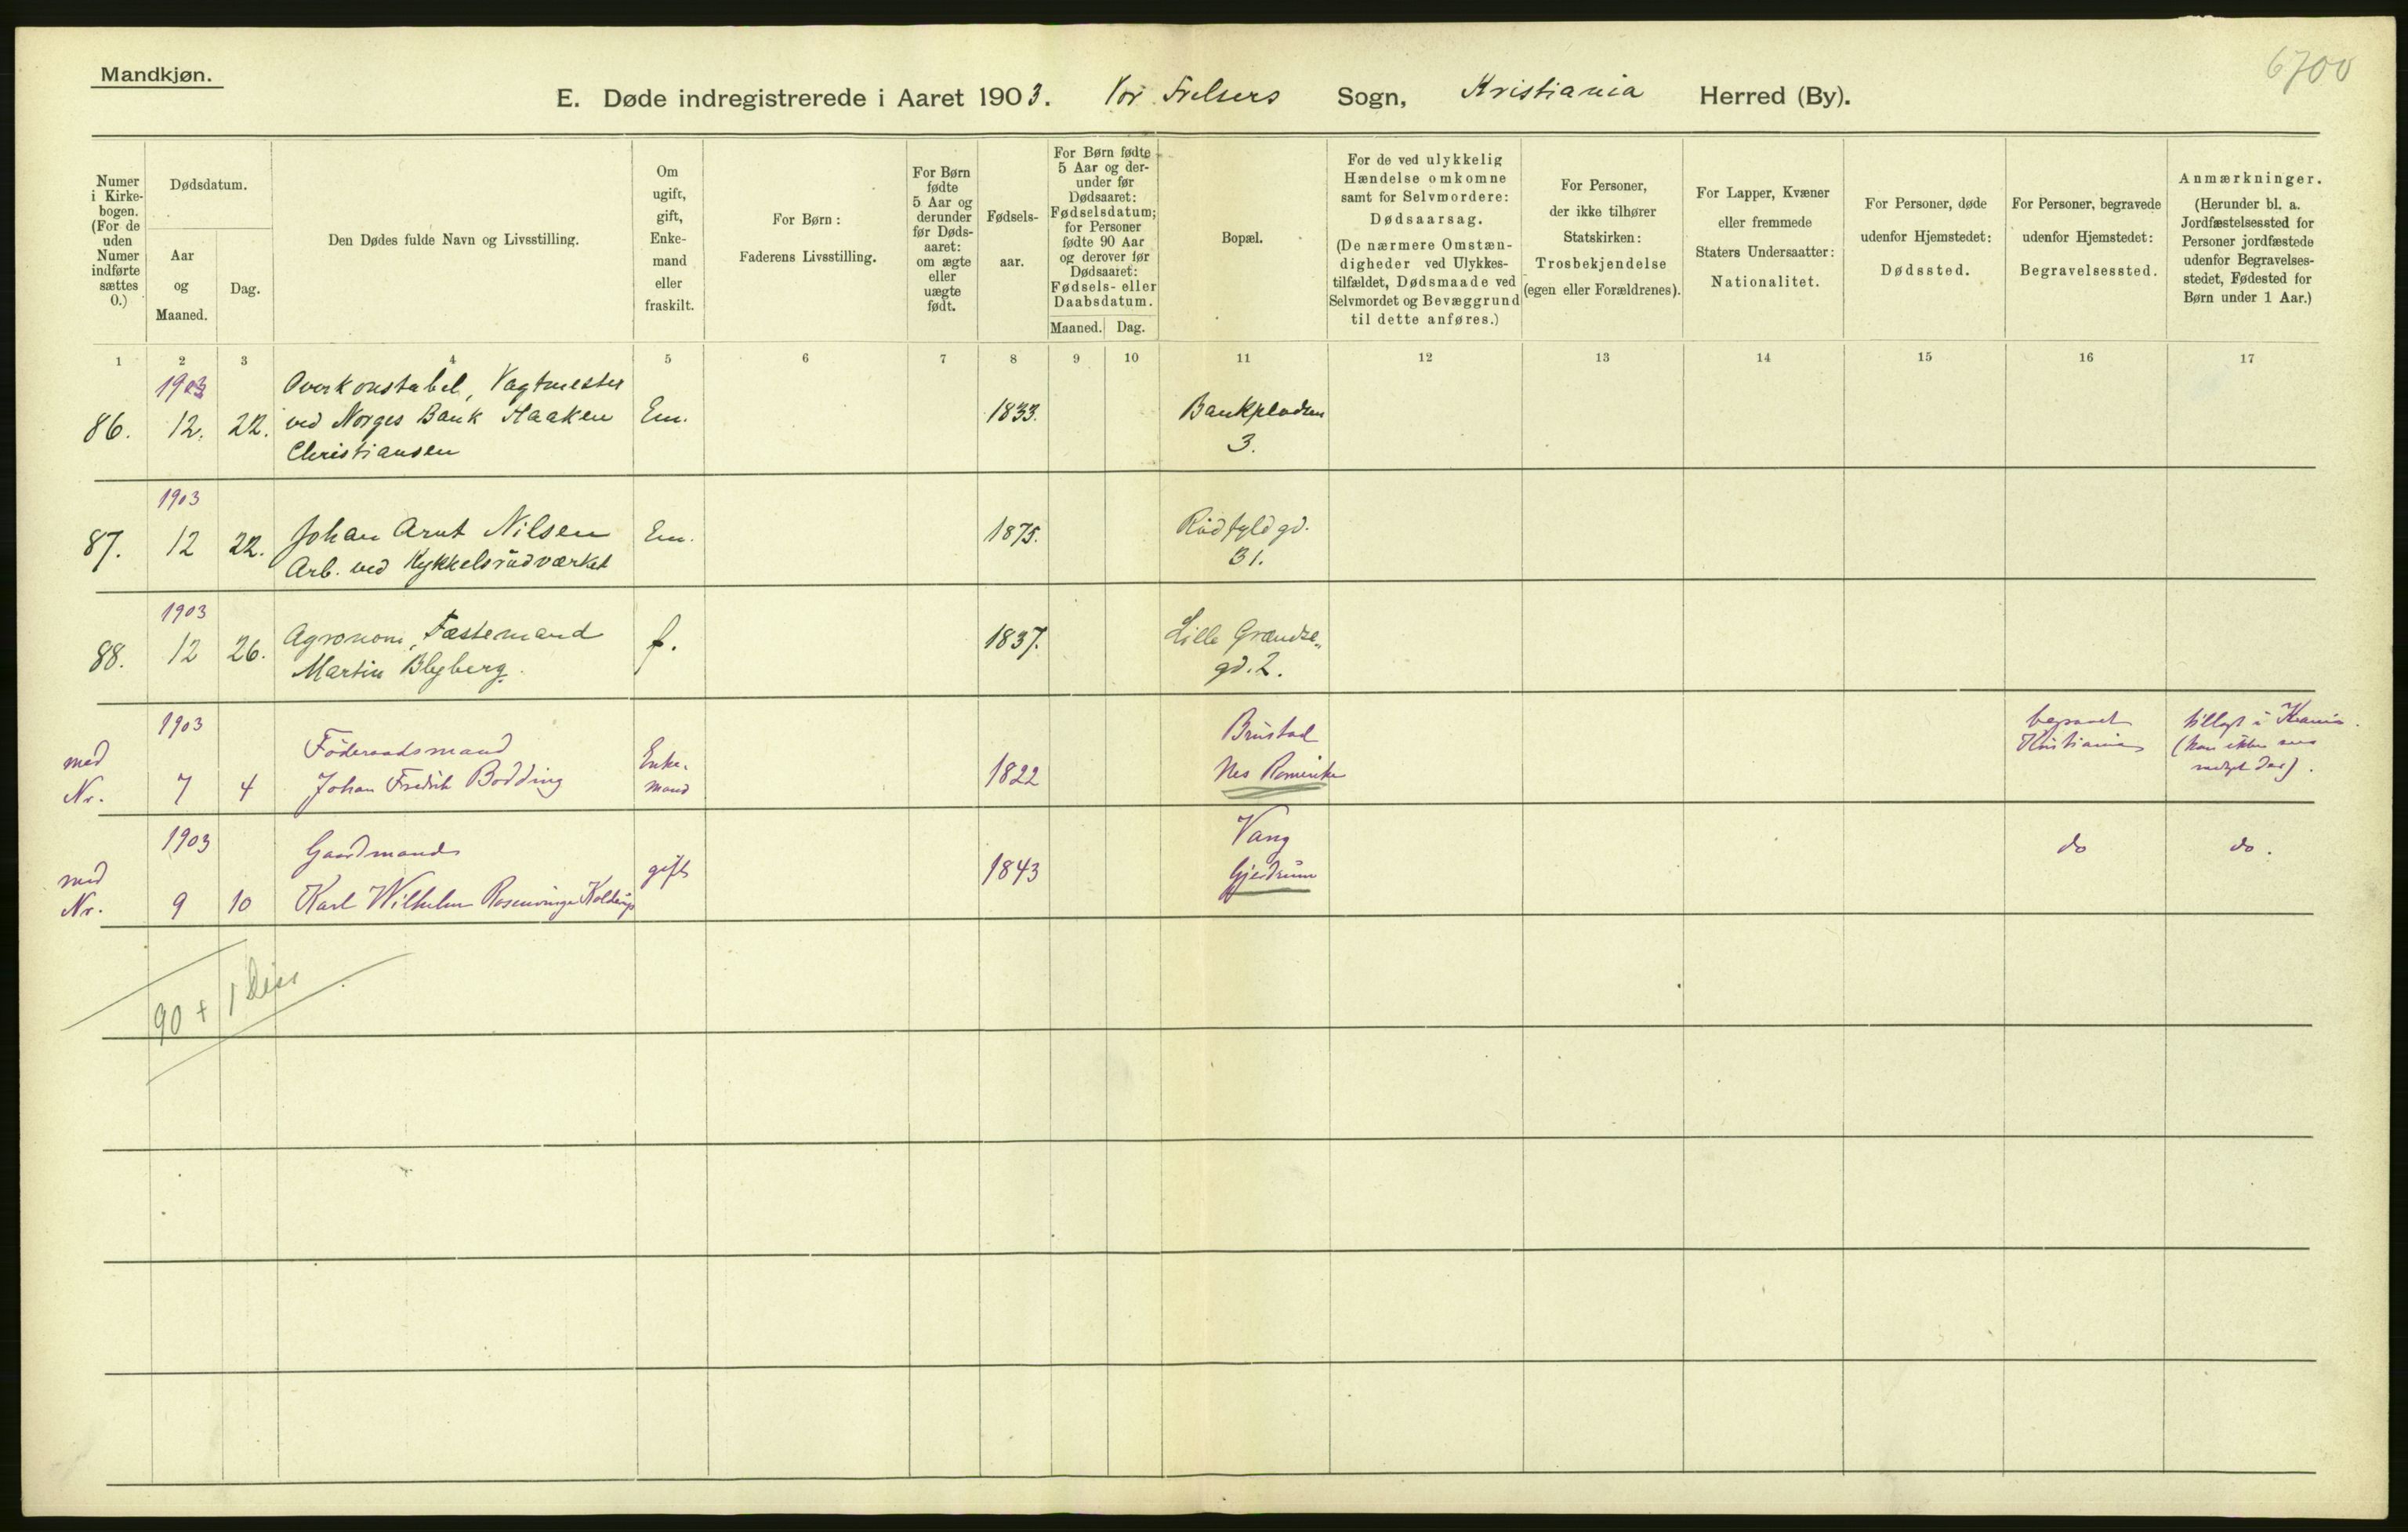 Mandkjøn.
6700
E. Døde indregistrerede i Aaret 1903. Vor Frelsers Sogn, Kristiania Herred (By).
Numer i Kirke-bogen. (For de uden Numer indførte sættes 0.)
Dødsdatum.
Aar og Maaned.
Dag.
Den Dødes fulde Navn og Livsstilling.
Om ugift, gift, Enke-mand eller fraskilt.
For Børn: Faderens Livsstilling.
For Børn fødte 5 Aar og derunder før Døds-aaret: om ægte eller uægte født.
Fødsels-aar.
For Børn fødte 5 Aar og der-under før Dødsaaret: Fødselsdatum; for Personer fødte 90 Aar og derover før Dødsaaret: Fødsels- eller Daabsdatum.
Maaned. Dag.
Bopæl.
For de ved ulykkelig Hændelse omkomne samt for Selvmordere: Dødsaarsag. (De nærmere Omstæn-digheder ved Ulykkes-tilfældet, Dødsmaade ved Selvmordet og Bevæggrund til dette anføres.)
For Personer, der ikke tilhører Statskirken: Trosbekjendelse (egen eller Forældrenes).
For Lapper, Kvæner eller fremmede Staters Undersaatter: Nationalitet.
For Personer, døde udenfor Hjemstedet: Dødssted.
For Personer, begravede udenfor Hjemstedet: Begravelsessted.
Anmærkninger. (Herunder bl. a. Jordfæstelsessted for Personer jordfæstede udenfor Begravelses-stedet, Fødested for Børn under 1 Aar.)
1 2 3 4 5 6 7 8 9 10 11 12 13 14 15 16 17
1903 Overkonstabel, Vagtmester
86. 12. 22. ved Norges Bank Haaken Em. 1833. Bankpladsen
Christiansen 3.
1903
87. 12 22. Johan Arnt Nilsen Em. 1875. Rådhusgd.
Arb. ved Kykkelsrudværket 31.
1903
88. 12 26. Agronom, Fæstemand f. 1837. Lille Grændse
Martin Blyberg. gd. 2.
1903 Föderaadsmand Brustad begravet Kristiania
med Nr. 7 4 Johan Fredrik Bodding Enke-mand 1822 Nes Romerike
tillagt i Krania. (kan ikke medtages der).
1903 Gaardmand Vang do do.
med Nr. 9 10 Karl Wilhelm Rosenvinge Kolderup gift 1843 Gjerdrum
90 + 1